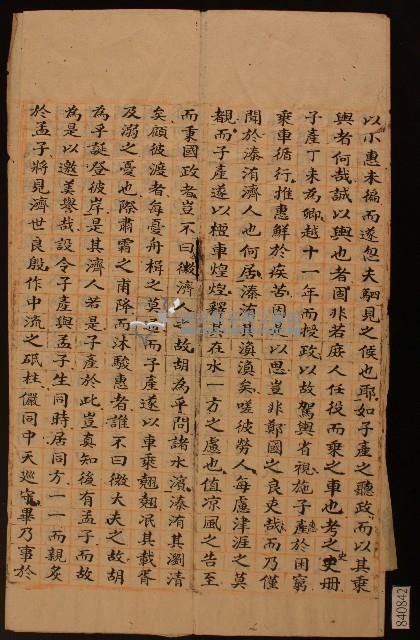 以小惠未徧而遂忽夫駟見之候也耶如子產之聽政而以其乘
輿者何哉誠以輿也者固非若庶人任役而乘之車也考之史册
子產丁未為卿越十一年而授政以故駕輿省視施惠於困窮
乘車循行推惠鮮於疾苦因是以思豈非鄭國之良吏哉而乃僅
聞於溱洧濟人也何居溱其渙渙矣嗟彼勞人每慮津涯之莫
覩而子產遂以檀車煌煌釋其在水一方之慮也值凉風之告至
而秉國政者豈不曰微濟人之故胡為乎問諸水濱溱洧其瀏清
矣顧彼渡者每憂舟楫之莫而子產遂以車乘翹翹泯其載胥
及溺之憂也際肅霜之甫降而沐駿惠者誰不曰微大夫之故胡
為乎誕登彼岸是其濟人若是子產於此豈真知後有孟子而故
為是以邀美譽哉設令子產與孟子生同時居同方一一而親炙
於孟子將見濟世良殷作中流之砥柱儼同中天巡守畢乃事於
840842